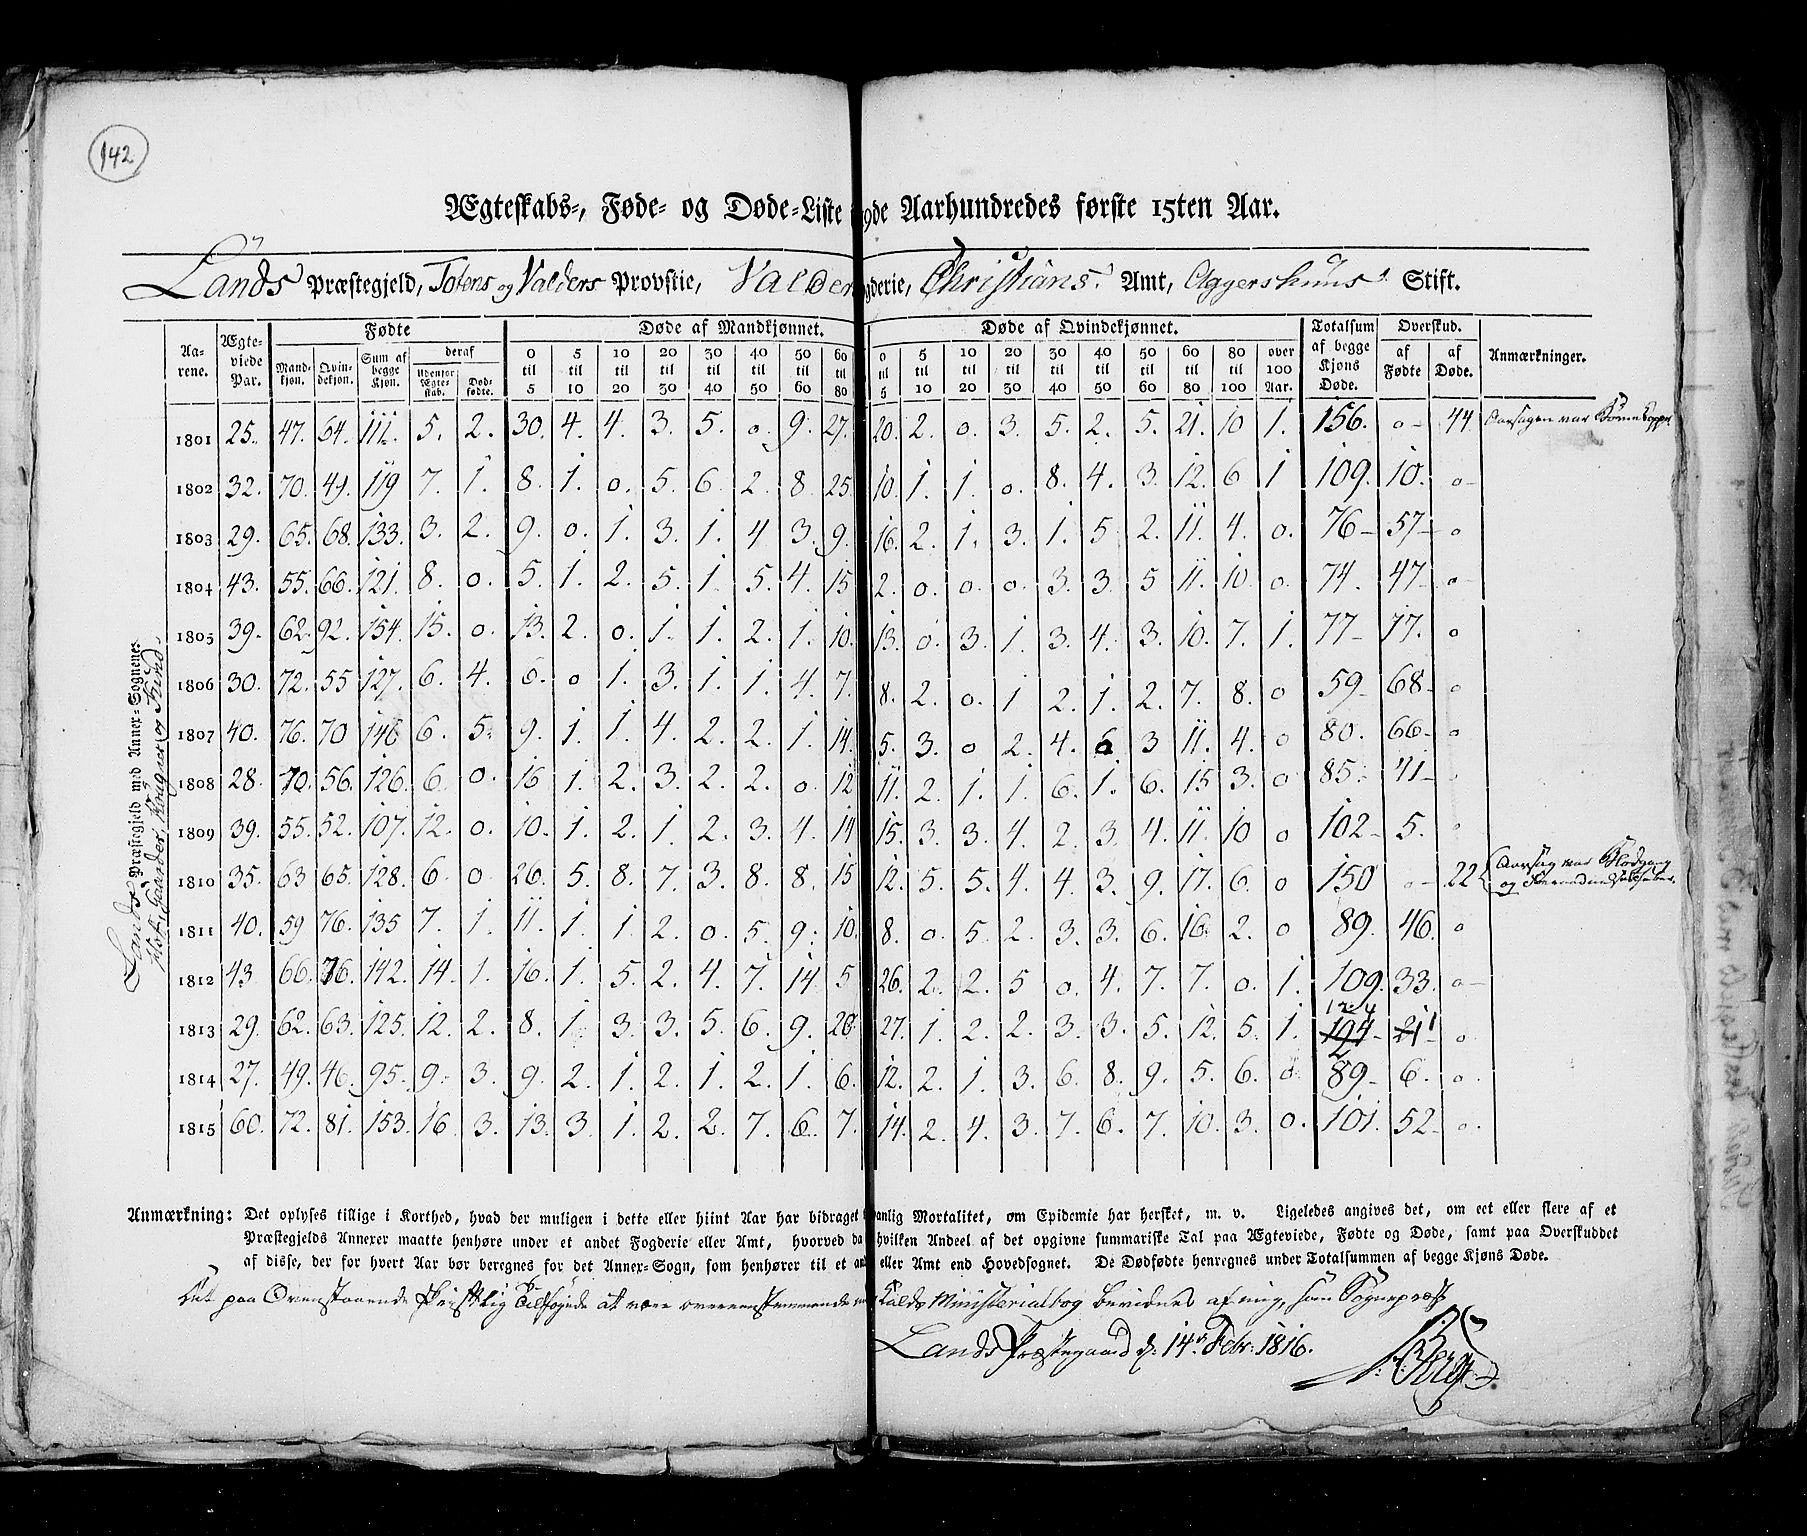 142
Ægteskabs-, Føde- og Døde-Liste 19de Aarhundredes første 15ten Aar.
Lands Præstegjeld, Totens og Valders Provstie, Valders Fogderie, Christians Amt, Aggershuus Stift.
Aarene. Ægteviede Par. Fødte Døde af Mandkjønnet. Døde af Qvindekjønnet. Totalsum af begge Kjøns Døde. Overskud. Anmærkninger.
Mandkjøn. Qvindekjøn. Sum af begge Kjøn. deraf Udenfor Ægteskab. Dødfødte. 0 til 5 5 til 10 10 til 20 20 til 30 30 til 40 40 til 50 50 til 60 60 til 80 0 til 5 5 til 10 10 til 20 20 til 30 30 til 40 40 til 50 50 til 60 60 til 80 80 til 100 over 100 Aar. af Fødte af Døde.
Lands Præstegjeld med Annex-Sognene
1801 25. 47. 64. 111. 5. 2. 30. 4. 4. 3. 5. 0. 9. 27. 20. 2. 0. 3. 5. 2. 5. 21. 10 1. 156. 0 44. Aarsagen var
1802 32. 70. 49. 119 7. 1. 8. 1. 0. 5. 6. 2. 8. 25. 10. 1. 1. 0. 8. 4. 3. 12. 6 1 109. 10. 0
1803 29. 65. 68. 133. 3. 2. 9. 0. 1. 3. 1. 4 3. 9. 16. 2. 1. 3. 1. 5 2. 11. 4. 0. 76 57 0
1804 43. 55. 66. 121. 8. 0. 5. 1. 2. 5. 1. 5. 4. 15 2. 0. 0. 0. 3. 3. 5 11. 10. 0. 74. 47 0
1805 39. 62. 92. 154. 15. 0. 13. 2. 0. 1. 1. 2. 1. 10. 13. 0. 3. 1. 3. 4. 3. 10. 7. 1. 77 77. 0
1806 30. 72. 55 127. 6. 4. 6. 0 1. 3. 1. 1. 4. 7. 8. 2. 0. 1 2. 1. 2. 7. 8. 0 59 68 0
1807 40. 76. 70 146 6. 5. 9. 1. 1. 4. 2. 2. 1. 14. 5. 3. 0 2. 4. 6 3 11. 4. 0 80. 66 0
1808 28. 70. 56. 126. 6. 0. 16 1. 2. 3. 2. 2. 0. 12 11. 2. 1. 1. 6. 1. 6. 15 3. 0 85. 41 0
1809 39. 55. 52. 107. 12. 0. 10. 1. 2. 1. 2. 3. 4. 14 15. 3. 3. 4. 2. 3. 4. 11. 10 0 102 5. 0
1810 35. 63 65. 128. 6 0. 26. 5. 8. 7. 3. 8. 8. 15 12. 5. 5. 4. 4. 3. 9. 17. 6. 0 150 0 22 Aarsag var Blodgang og
1811 40. 59 76. 135 7. 1. 11. 1. 1. 2. 0. 5. 9. 10. 8. 0. 5. 2. 3. 3. 6. 16. 2. 0 89. 46. 0
1812 43. 66. 76. 142. 14. 1. 16. 1. 5. 2. 4. 7. 14. 5 26. 2. 2. 5 0. 4. 7. 7. 0. 1. 109. 33. 0
1813 29. 62. 63. 125. 12. 2. 8. 1. 3. 3. 5. 6. 9. 28. 27. 1. 2. 2. 3. 3. 5. 12. 5. 1. 124 1 0
1814 27. 49. 46. 95. 9. 3. 9. 2. 1. 2. 1. 2. 1. 6. 12. 2. 1. 3. 6. 8. 9. 5. 6. 0 89 6. 0
1815 60. 72. 81. 153. 16 3. 13. 3. 1. 2. 2. 7. 6. 7. 14. 2. 4. 3. 7. 6. 7. 10. 3. 0. 101. 52 0
Anmærkning: Det oplyses tillige i Korthed, hvad der muligen i dette eller hiint Aar har bidraget anlig Mortalitet, om Epidemie har hersket, m. v. Ligeledes angives det, om eet eller flere af et
Præstegjelds Annexer maatte henhøre under et andet Fogderie eller Amt, hvorved da hvilken Andeel af det opgivne summariske Tal paa Ægteviede, Fødte og Døde, samt paa Overskuddet
af disse, der for hvert Aar bør beregnes for det Annex-Sogn, som henhører til et eller Amt end Hovedsognet. De Dødfødte henregnes under Totalsummen af begge Kjøns Døde.
overeenstemmende Kalds Ministerialbog bevidnes af mig, som Sognepræst
Lands Præstegaard d: 14de Febr: 1816.
Berg